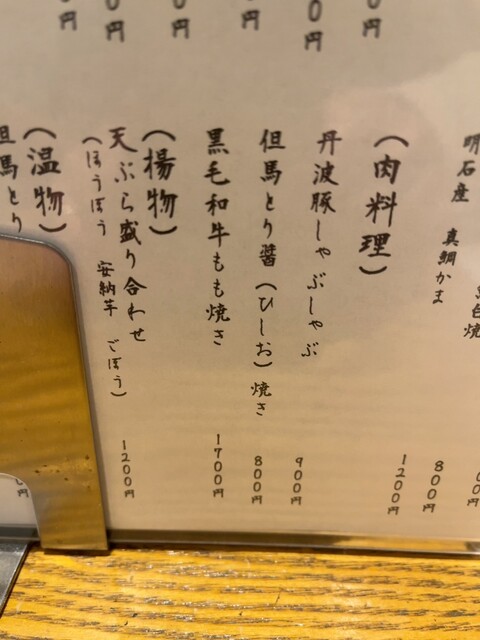 0円
0円
0円
0円
0円
0円
白焼
明石産 真鯛かま 800円
1200円
(肉料理)
丹波豚しゃぶしゃぶ 900円
但馬とり醤(ひしお)焼き 800円
黒毛和牛もも焼き 1700円
(揚物)
天ぷら盛り合わせ 1200円
(ほうぼう 安納芋 ごぼう)
(温物)
但馬とり
円